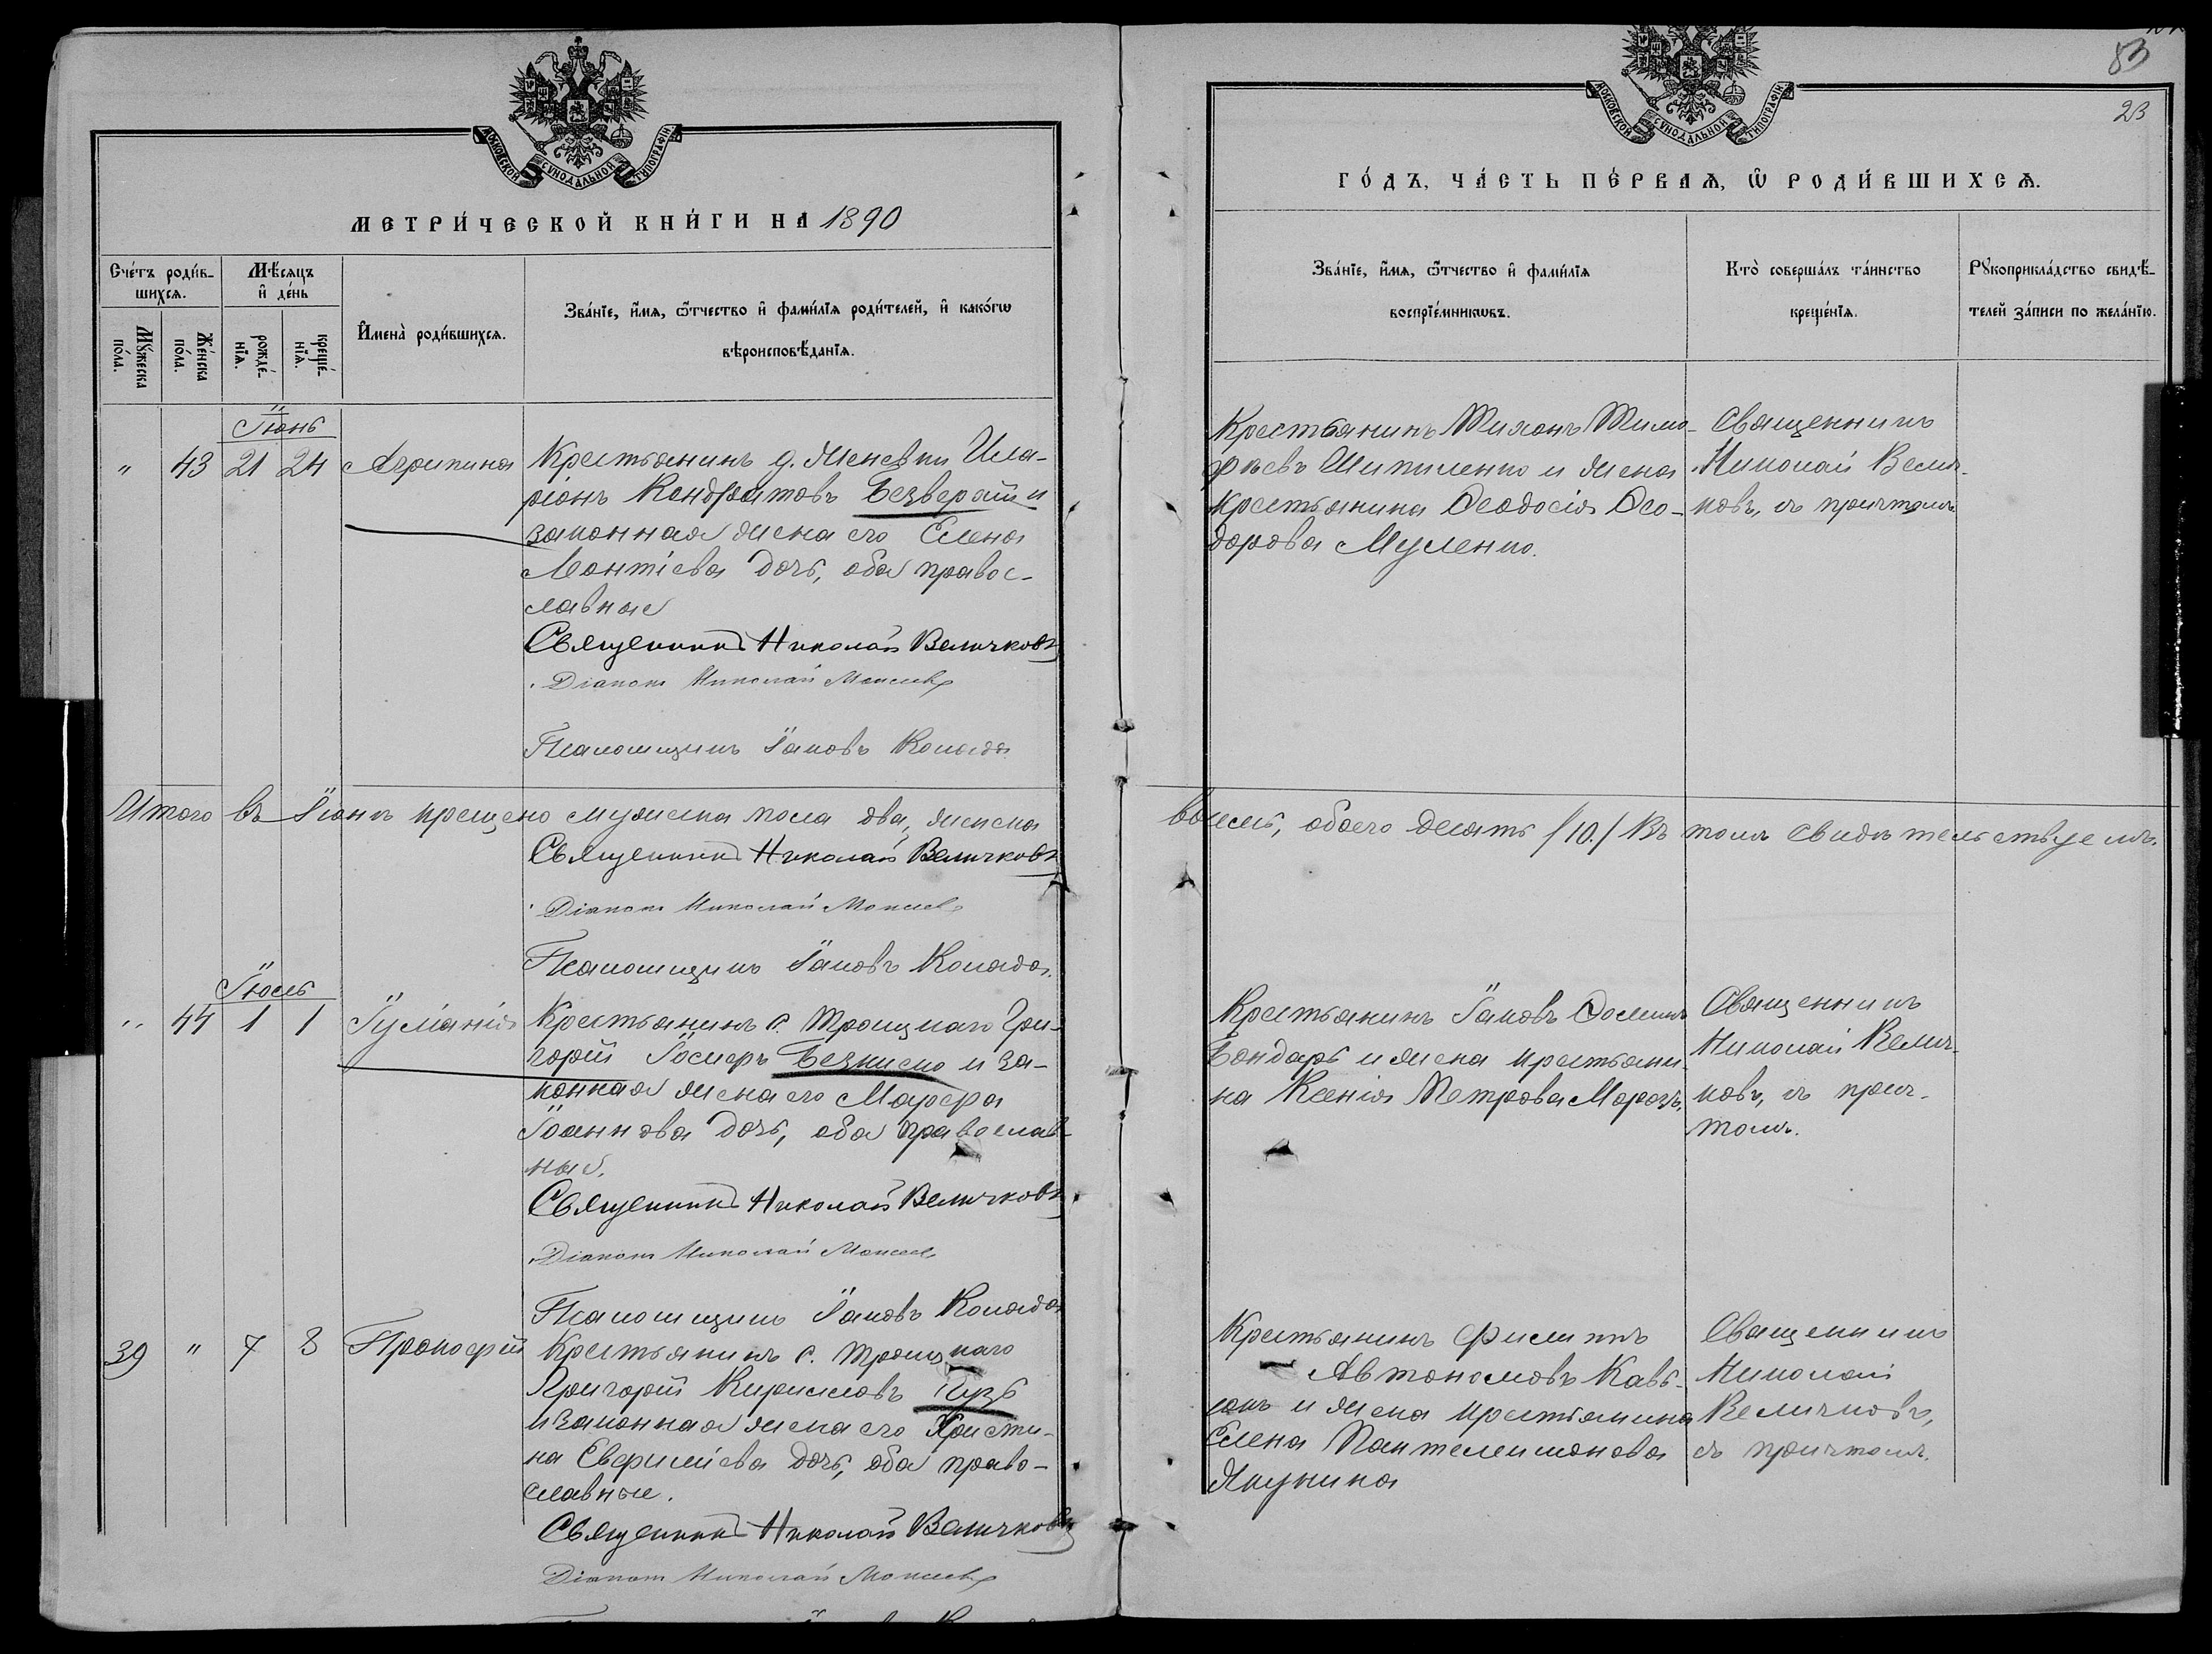 МОСКОВСКОЙ СѴНОДАЛЬНОЙ ТИПОГРАФІИ
МЕТРИ́ЧЕСКОЙ КНИ́ГИ НА 1890
Сче́тъ роди́в-
шихсѧ.
Мꙋ́жеска
по́ла.
Же́нска
по́ла.
Мѣ́сѧцъ
и҆ де́нь
рожде́-
нїѧ.
креще́-
нїѧ.
И҆мена̀ роди́вшихсѧ.
Зва́нїе, и҆́мѧ, ѻ҆́тчество и҆ фами́лїѧ роди́телей, и҆ како́гѡ
вѣроисповѣ́данїѧ.
Іюнь
" 43 21 24 Агрипина
Крестьянинъ д. Женевки Ила-
ріонъ Кондратовъ Безверхій и
законная жена его Елена
Леонтіева дочь, оба правос-
лавные
Священникъ Николай Величковъ
Діаконъ Николай
Псаломщикъ Іаковъ Коляда
Итого въ Іюнѣ крещено мужеска пола два, женска
Священникъ Николай Величковъ
Діаконъ Николай
Псаломщикъ Іаковъ Коляда
Іюль
" 44 1 1 Іуліанія
Крестьянинъ с. Троицкаго Гри-
горій Безкисло и за-
конная жена его Марфа
Іоаннова дочь, оба православ-
ные.
Священникъ Николай Величковъ
Діаконъ Николай
Псаломщикъ Іаковъ Коляда
39 " 7 8 Прокофій
Крестьянинъ с. Троицкаго
Григорій Кирилловъ Пузь
и законная жена его Христи-
на Евфиміева дочь, оба право-
славные.
Священникъ Николай Величковъ
Діаконъ Николай
83
23
МОСКОВСКОЙ СѴНОДАЛЬНОЙ ТИПОГРАФІИ
ГО́ДЪ, ЧА́СТЬ ПЕ́РВАѦ, Ѡ҆ РОДИ́ВШИХСѦ.
Зва́нїе, и҆́мѧ, ѻ҆́тчество и҆ фами́лїѧ
воспрїе́мникѡвъ.
Кто̀ соверша́лъ та́инство
креще́нїѧ.
Рꙋкоприкла́дство свидѣ́-
телей за́писи по жела́нїю.
Крестьянинъ Тихонъ Тимо-
феевъ Шипиленко и жена
крестьянина Феодосія Фео-
дорова Муленко.
Священникъ
Николай Велич-
ковъ, съ причтомъ
восемь, обоего десять /10./ Въ томъ свидѣтельствуемъ.
Крестьянинъ Іаковъ Фоминъ
Бондарь и жена крестьяни-
на Ксенія Петрова Морозъ.
Священникъ
Николай Велич-
ковъ, съ прич-
томъ.
Крестьянинъ Филиппъ
Автономовъ Кавь-
юкъ и жена крестьянина
Елена Пантелеимонова
Якунина
Священникъ
Николай
Величковъ,
съ причтомъ.